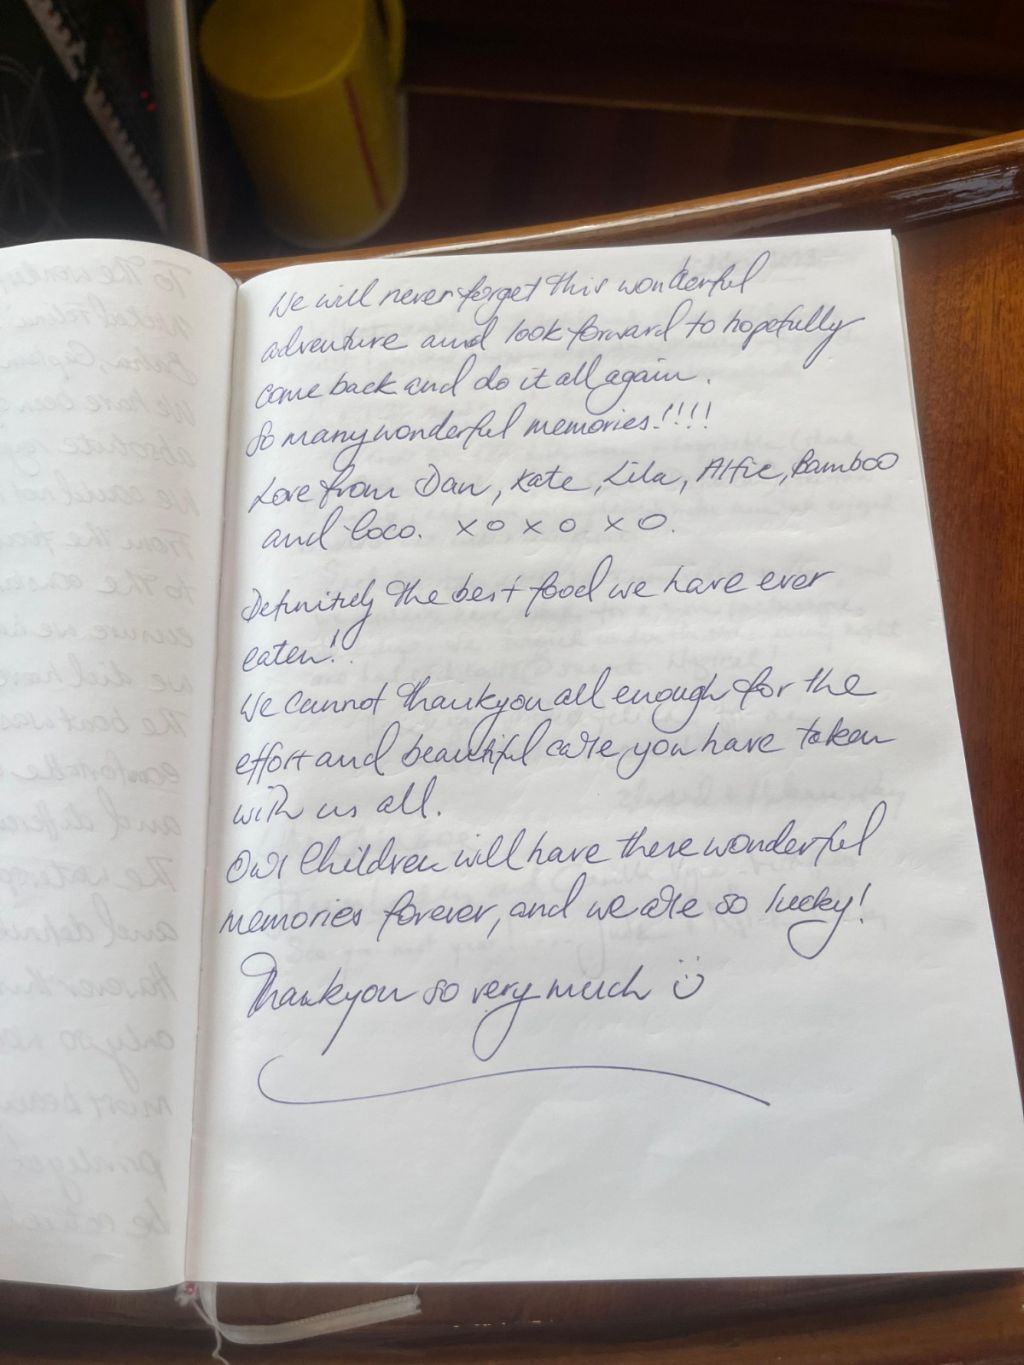 We will never forget this wonderful
adventure and look forward to hopefully
come back and do it all again.
So many wonderful memories!!!!!
Love from Dan, Kate, Lila, Alfie, Bamboo
and Coco. x o x o x o.
Definitely the best food we have ever
eaten!!
We cannot thankyou all enough for the
effort and beautiful care you have taken
with us all.
Our Children will have there wonderful
memories forever, and we are so lucky!
Thankyou so very much